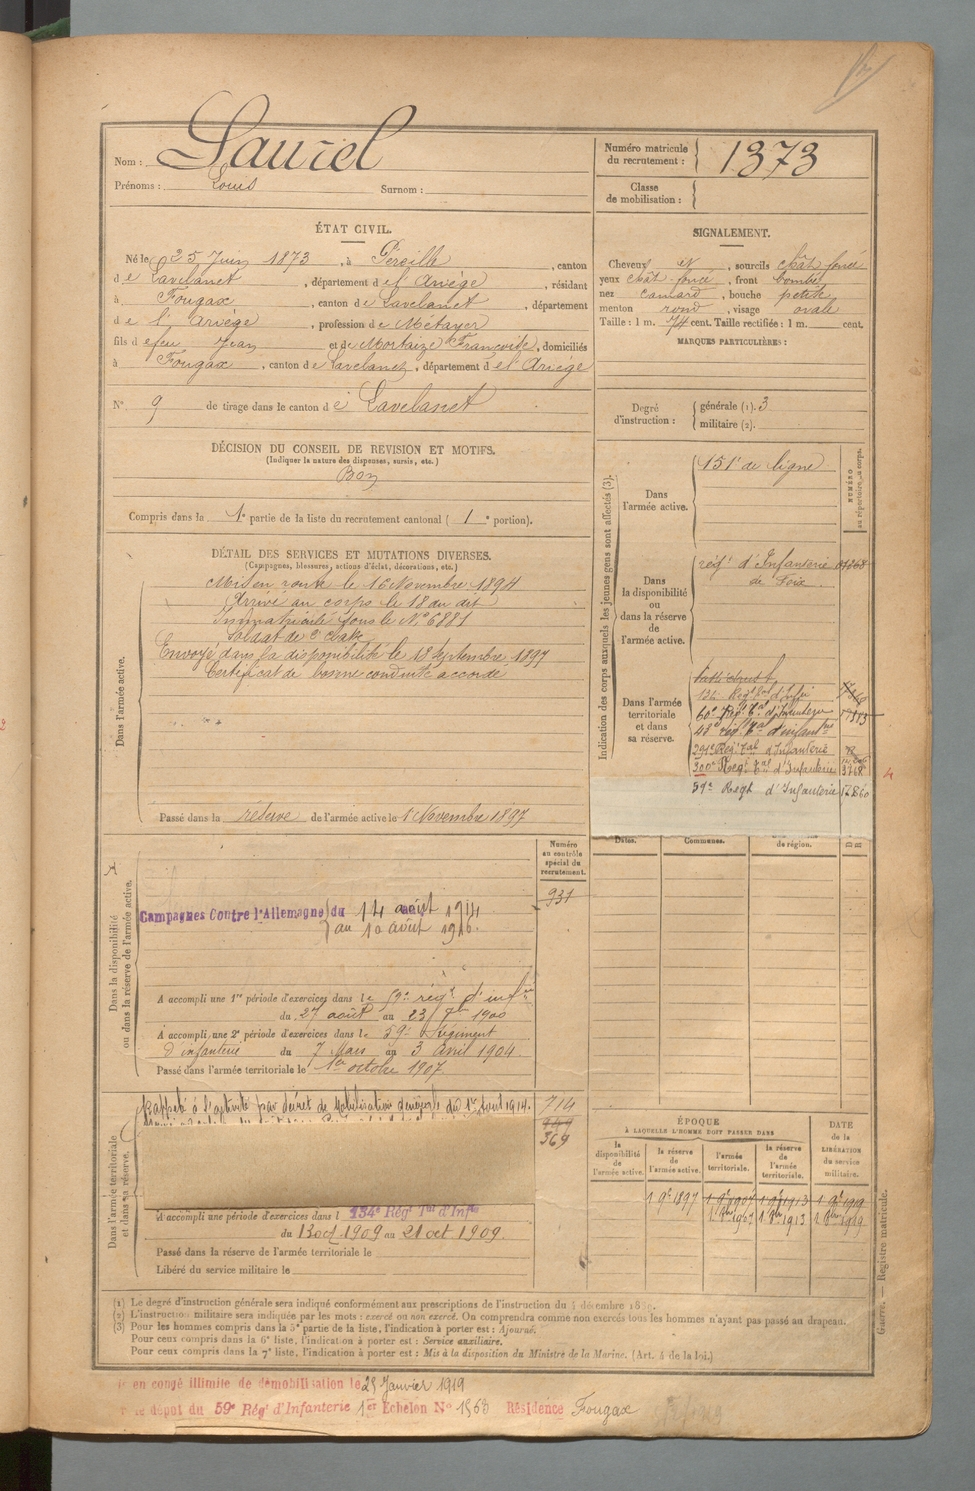 Nom : Laurel
Prénoms : Louis Surnom :
Numéro matricule du recrutement : 1373
Classe de mobilisation :
ÉTAT CIVIL.
Né le 25 Juin 1873, à Péreille, canton
de Lavelanet, département de l'Ariège, résidant
à Fougax, canton de Lavelanet, département
de l'Ariège, profession de Métayer
fils de feu Jean et de Mortaize Françoise, domiciliés
à Fougax, canton de Lavelanet, département de l'Ariège
N° 9 de tirage dans le canton de Lavelanet
SIGNALEMENT.
Cheveux N, sourcils chât foncé
yeux chât-foncé, front bombé
nez camard, bouche petite
menton rond, visage ovale
Taille : 1 m. 74 cent. Taille rectifiée : 1 m. cent.
MARQUES PARTICULIÈRES :
Degré d'instruction : générale (1). 3
militaire (2).
DÉCISION DU CONSEIL DE REVISION ET MOTIFS.
(Indiquer la nature des dispenses, sursis, etc.)
Bon
Compris dans la 1e partie de la liste du recrutement cantonal ( 1e portion).
DÉTAIL DES SERVICES ET MUTATIONS DIVERSES.
(Campagnes, blessures, actions d'éclat, décorations, etc.)
Dans l'armée active.
Mis en route le 16 Novembre 1894
Arrivé au corps le 18 du dit
Immatriculé sous le N° 6881
Soldat de 2e classe
Envoyé dans la disponibilité le 18 Septembre 1897
Certificat de bonne conduite accordé
Passé dans la réserve de l'armée active le 1 Novembre 1897
Indication des corps auxquels les jeunes gens sont affectés (3).
NUMÉRO au répertoire du corps.
Dans l'armée active.
151e de ligne
Dans la disponibilité ou dans la réserve de l'armée active.
régt d'Infanterie
de Foix
Dans l'armée territoriale et dans sa réserve.
134e Régt Tal d'Infie
60e Régt Tal d'Infanterie
48e rég. Tal d'infanterie
291e Régt Tal d'Infanterie
300e Regt Tal d'Infanterie 3768
59e Regt d'Infanterie 12860
Dates. Communes. de région.
Dans la disponibilité ou dans la réserve de l'armée active.
Numéro au contrôle spécial du recrutement.
931
Campagnes Contre l'Allemagne du 14 août 1914
au 10 août 1916.
A accompli une 1re période d'exercices dans le 59e régt d'infie
du 27 août au 23 7bre 1900
A accompli une 2e période d'exercices dans le 59e Régiment
d'infanterie du 7 Mars au 3 Avril 1904.
Passé dans l'armée territoriale le 1er octobre 1907
Dans l'armée territoriale et dans sa réserve.
Rappelé à l'activité par décret de Mobilisation générale du 1er Août 1914.
714
369
A accompli une période d'exercices dans l 134e Régt Tal d'Infie
du 13 oct 1909 au 21 oct 1909.
Passé dans la réserve de l'armée territoriale le
Libéré du service militaire le
ÉPOQUE
À LAQUELLE L'HOMME DOIT PASSER DANS
la disponibilité de l'armée active.
la réserve de l'armée active.
l'armée territoriale.
la réserve de l'armée territoriale.
DATE de la LIBÉRATION du service militaire.
1 9e 1897 1 9e 1907 1 9e 1913 1 9e 1919
1 8bre 1907 1 8bre 1913 1 8bre 1919
Guerre. — Registre matricule.
(1) Le degré d'instruction générale sera indiqué conformément aux prescriptions de l'instruction du 4 décembre 1889.
(2) L'instruction militaire sera indiquée par les mots : exercé ou non exercé. On comprendra comme non exercés tous les hommes n'ayant pas passé au drapeau.
(3) Pour les hommes compris dans la 5e partie de la liste, l'indication à porter est : Ajourné.
Pour ceux compris dans la 6e liste, l'indication à porter est : Service auxiliaire.
Pour ceux compris dans la 7e liste, l'indication à porter est : Mis à la disposition du Ministre de la Marine. (Art. 4 de la loi.)
en congé illimité de démobilisation le 25 Janvier 1919
dépôt du 59e Régt d'Infanterie 1er Echelon N° 1568 Résidence Fougax